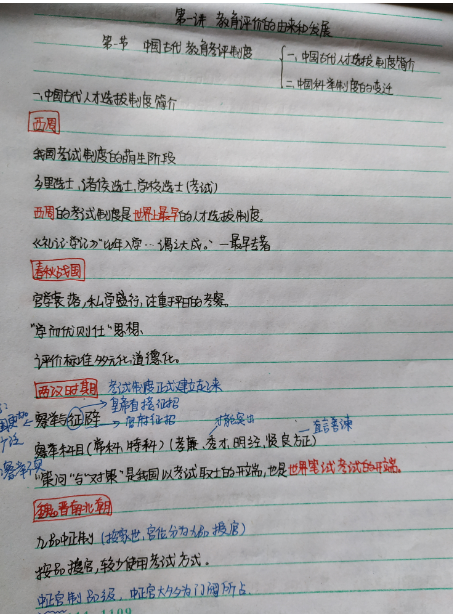 第一讲 教育评价的由来和发展
第一节 中国古代教育考评制度
一、中国古代人才选拔制度简介
二、中国科举制度的变迁
一、中国古代人才选拔制度简介
西周
我国考试制度的萌生阶段
乡里选士，诸侯选士，学校选士(考试)
西周的考试制度是世界上最早的人才选拔制度。
《礼记·学记》"比年入学…谓之大成。"—最早
春秋战国
官学衰落，私学盛行，注重平日的考察。
"学而优则仕"思想、
评价标准多元化，道德化。
两汉时期 考试制度正式建立起来
皇帝直接征招
察举与征辟 官府征招
察举科目(常科、特科)(孝廉、秀才、明经、贤良方正) 直言
"策问"与"对策"是我国以考试取士的开端，也是世界笔试考试的开端。
魏晋南北朝
九品中正制 (按家世、官位分为九品授官)
按品授官，较少使用考试方式。
中正官制品级，中正官大多为门阀所占